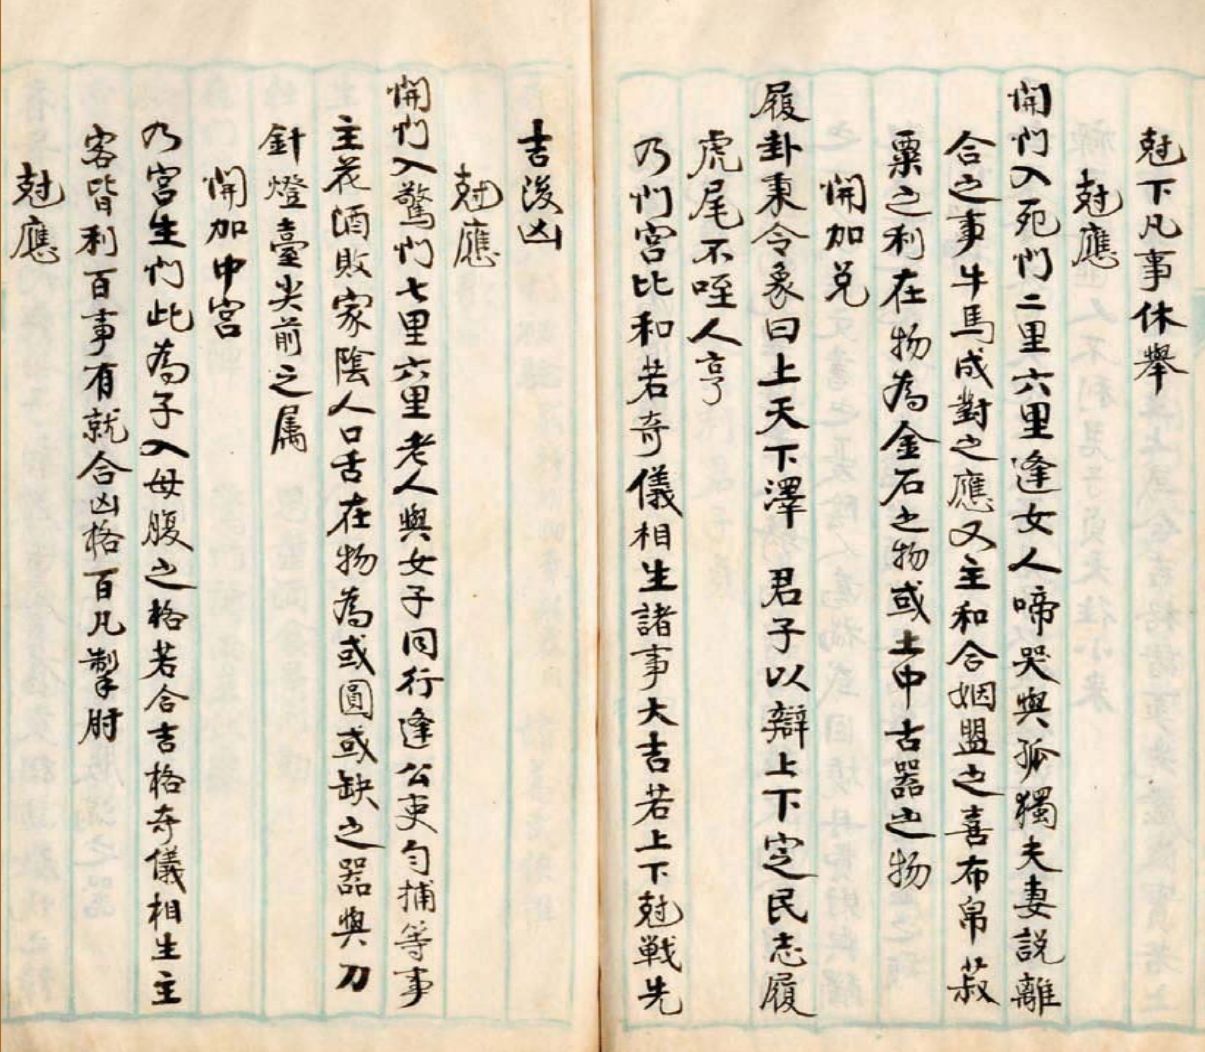 尅下凡事休舉
尅應
開門入死門二里六里逢女人啼哭與孤獨夫妻説離
合之事牛馬成對之應又主和合姻盟之喜布帛菽
粟之利在物為金石之物或土中古器之物
開加兑
履卦秉令象曰上天下澤君子以辯上下定民志履
虎尾不咥人亨
乃門宫比和若奇儀相生諸事大吉若上下尅戦先
吉後凶
尅應
開門入驚門七里六里老人與女子同行逢公吏勾捕等事
主花酒敗家陰人口舌在物為或圓或缺之器與刀
針燈臺尖前之属
開加中宫
乃宫生門此為子入母腹之格若合吉格奇儀相生主
客皆利百事有就合凶格百凡掣肘
尅應